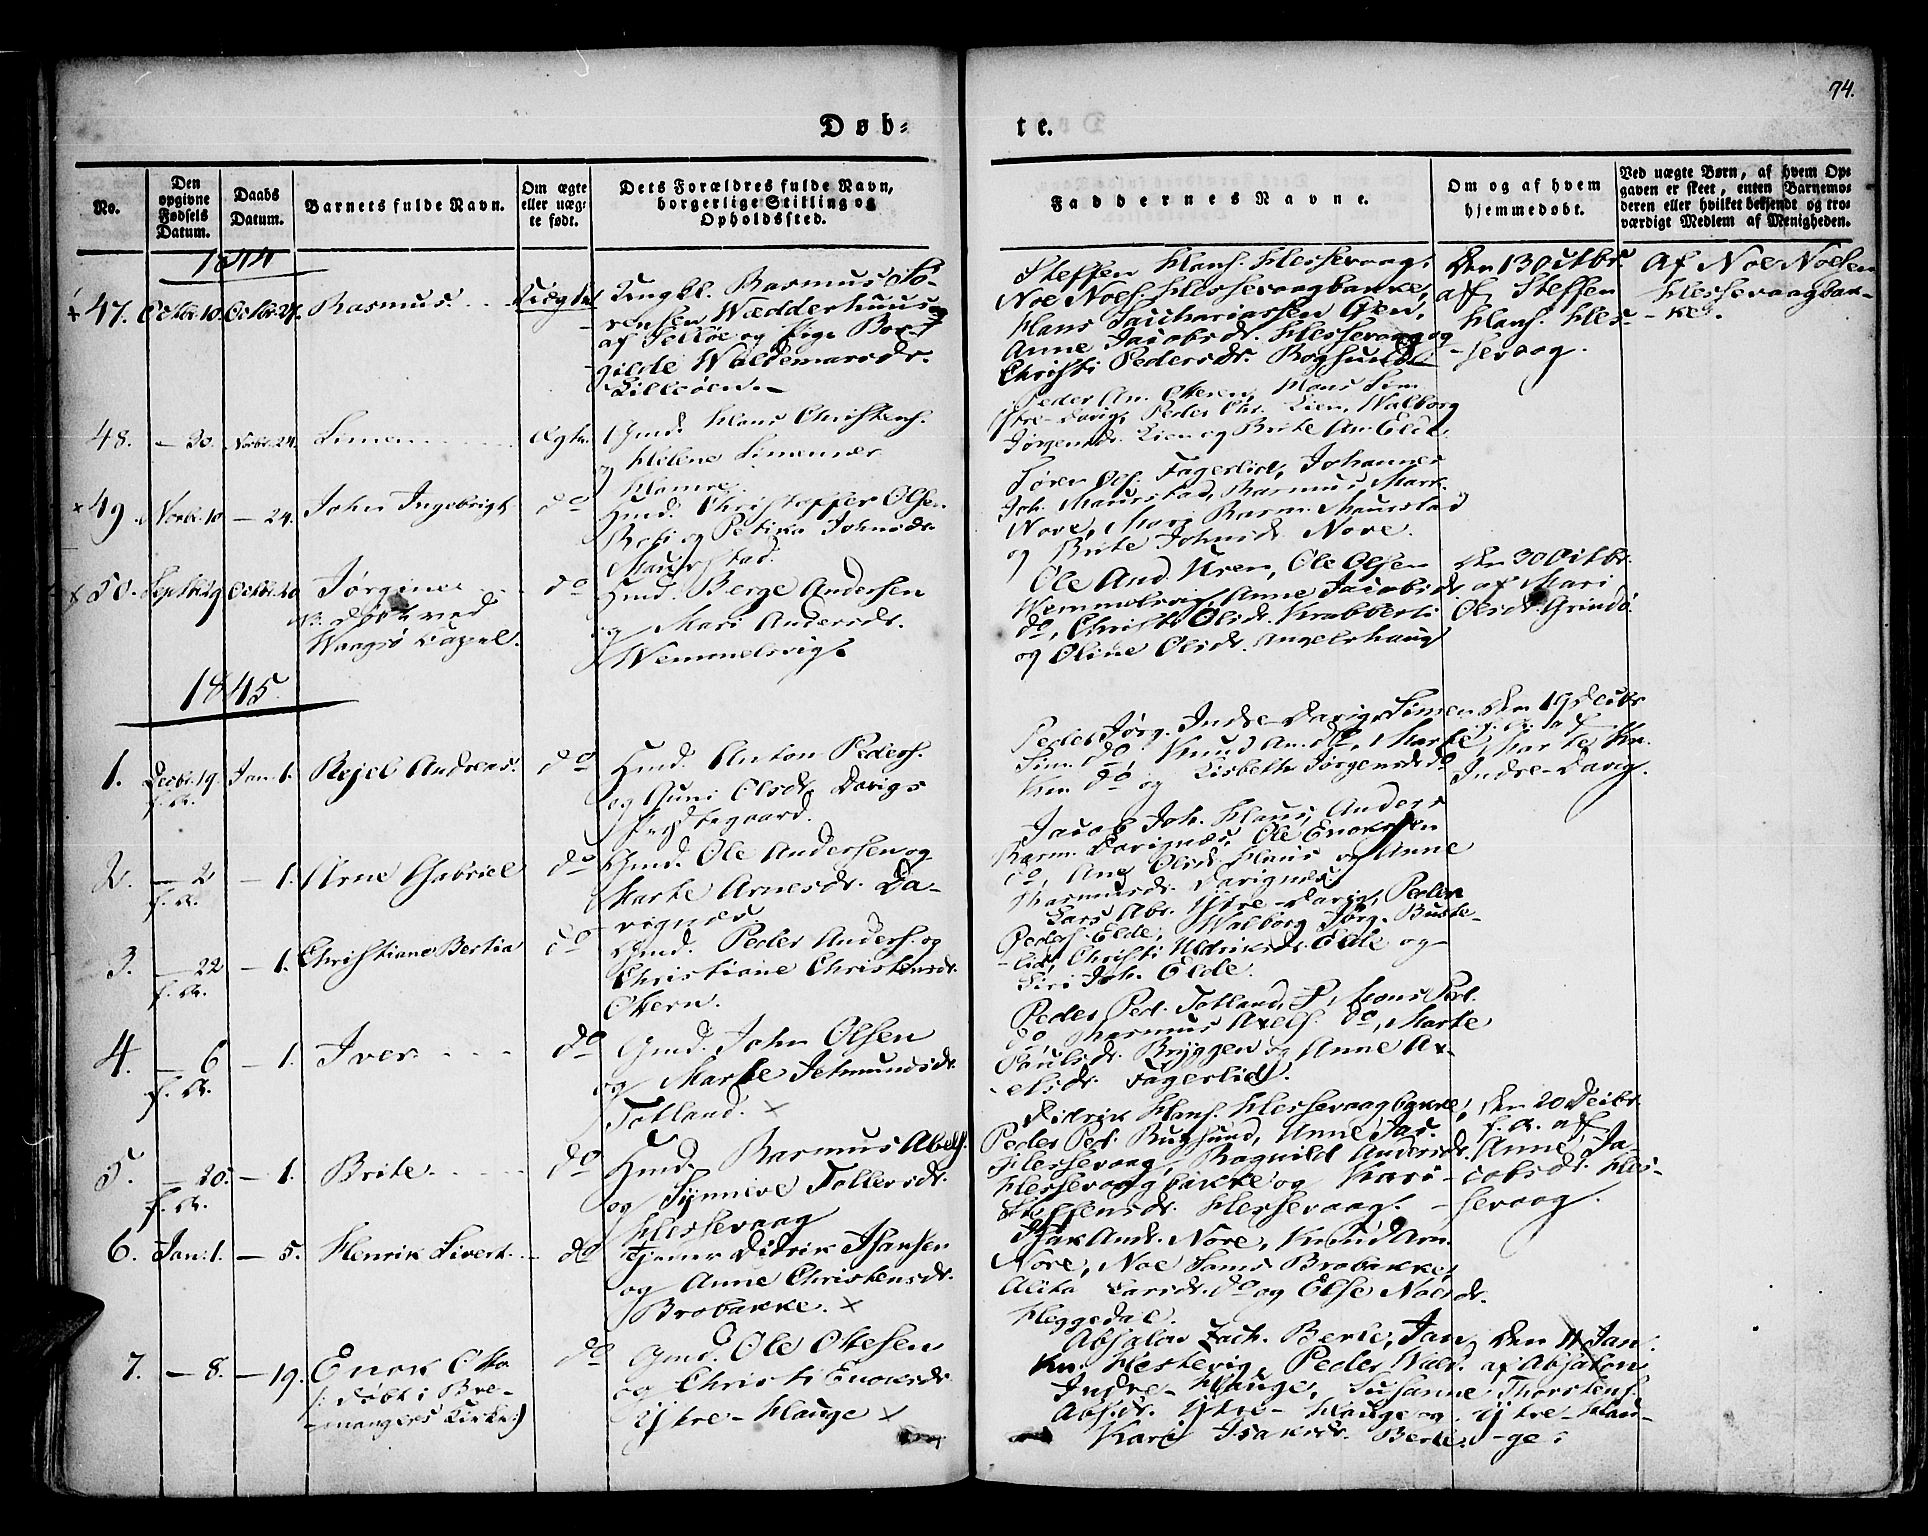 74.
Døb=
te.
No.
Den opgivne Fødsels Datum.
Daabs Datum.
Barnets fulde Navn.
Om ægte eller uægte født.
Dets Forældres fulde Navn, borgerlige Stilling og Opholdssted.
Faddernes Navne.
Om og af hvem hjemmedøbt.
Ved uægte Børn, af hvem Opgaven er skeet, enten Barnemoderen eller hvilket bekjendt og troværdigt Medlem af Menigheden.
1844
47. Octbr. 10. Octbr. 27. Rasmus Uægte
Ungkl. Rasmus Sø-
rensen Wædderhuus
af Selløe og Pige Bor-
gilde Waldemarsdr.
Lilleøen.
Steffen Hans. Hessevaag,
Noe Noes. Hessevaagbakke,
Hans Zachariassen
Anne Jacobsd. Hessevaag og
Christi Pedersdr. Rogsund
Den 13 Octbr.
af Steffen
Hans. Hes-
-sevaag.
Af Noe Noesen
Hessevaagbak-
-ke.
48. — 30. Novbr. 24. Simen Ægte
Gmd. Hans Christens.
og Helene Simensdr
Hamre.
Peder An. Otteren, Hans Sim.
Ytre-Davig, Peder Chr. Lien, Walborg
Jørgensdr. Lien og Brite An. Elde.
49 Novbr. 10 — 24. John Ingebrigt do
Hmd. Christopher Olsen
og Johnsdr.
Maurstad.
Søren Ols. Fagerlid, Johannes
Joh. Maurstad, Rasmus Mark.
Nore, Mari Rasm. Maurstad
og Brite Johnsd. Nore.
50. Septbr 29 Octbr. 20 Jørgine do
døbt ved
Waagsø Capel.
Hmd. Berge Andersen
og Mari Andersdr.
Wemmelsvig.
Ole And. Uren, Ole Olsen
Wemmelsvig, Anne Jacobsdr.
do, Christi Olsdr. Krabbesti
og Oline Olsdr. Angelshaug
Den 30 Octbr.
af Mari
Olsdr. Grindø.
1845.
1. Decbr. 19. Jan. 1. Rejel Andreas. do
f. A.
Hmd. Anton Peders.
og Guni Olsdr. Davigs
Prestegaard.
Peder Jørg. Indre-Davig, Simen
Sim. do, Knud An. do, Marte
Knu. do og Lisbeth Jørgensdr do
Den 19 Decbr
f. A. af
Marte Kn.
Indre-Davig.
2. — 2 — 1. Arne Gabriel do
f. A.
Gmd. Ole Andersen og
Marte Arnesdr. Da-
vignes.
Jacob Joh. Haus, Anders
Rasm. Davignes, Ole Enoksen
do, Ane Olsd. Haus og Anne
Rasmusdr. Davignes.
3. — 22 — 1. Christiane Bertia do
f. A.
Gmd. Peder Anders. og
Christiane Christensdr.
Ottern.
Lars Abr. Ytre-Davig, Peder
Peders. Elde, Walborg Jørg. Buste-
-lid, Christi Uldriksdr. Elde og
Siri Joh. Elde.
4. — 6 — 1. Iver do
f. A.
Gmd. John Olsen
og Marte Jetmundsdr.
Totland. ×
Peder Ped. Totland, Mons Ped.
do Rasmus Axels. do, Marte
Paulsdr. Bryggen og Anne Ax-
-elsdr. Fagerlid.
5. — 20. — 1. Brite do
f. A.
Hmd. Rasmus Abels.
og Synneve Tollevsdr.
Hessevaag
Didrik Hans. Hessevaagbakke,
Peder Ped. Rugsund, Anne Jac.
Hessevaag, Ragnild Andersdr.
Hessevaagbakke og Kari
Steffensdr. Hessevaag.
Den 20 Decbr.
f. A. af
Anne Ja-
cobsdr. Hes-
-sevaag.
6. Jan. 1. — 5. Henrik Sivert do
Tjener Didrik Isaksen
og Anne Christensdr.
Brobakke. ×
Isak And. Nore, Knud Arn.
Nore, Noe Sams. Brobakke,
Alita Larsdr. do og Else Noesdr.
Heggedal.
7. — 8. — 19. Enok Otto do
(: døbt i Bre-
-mangers Kirke:)
Gmd. Ole Ottesen
og Christi Enoksdr
Ytre-Hauge ×
Absalon Zach. Berle, Jan
Kn. Hestevig, Peder Wald.
Indre-Hauge, Susanne
Absdr. Ytre-Hauge og
Kari Isaksdr. Berle.
Den 11 Jan.
af Absalon
Thorstens.
Ytre-Hau-
-ge.